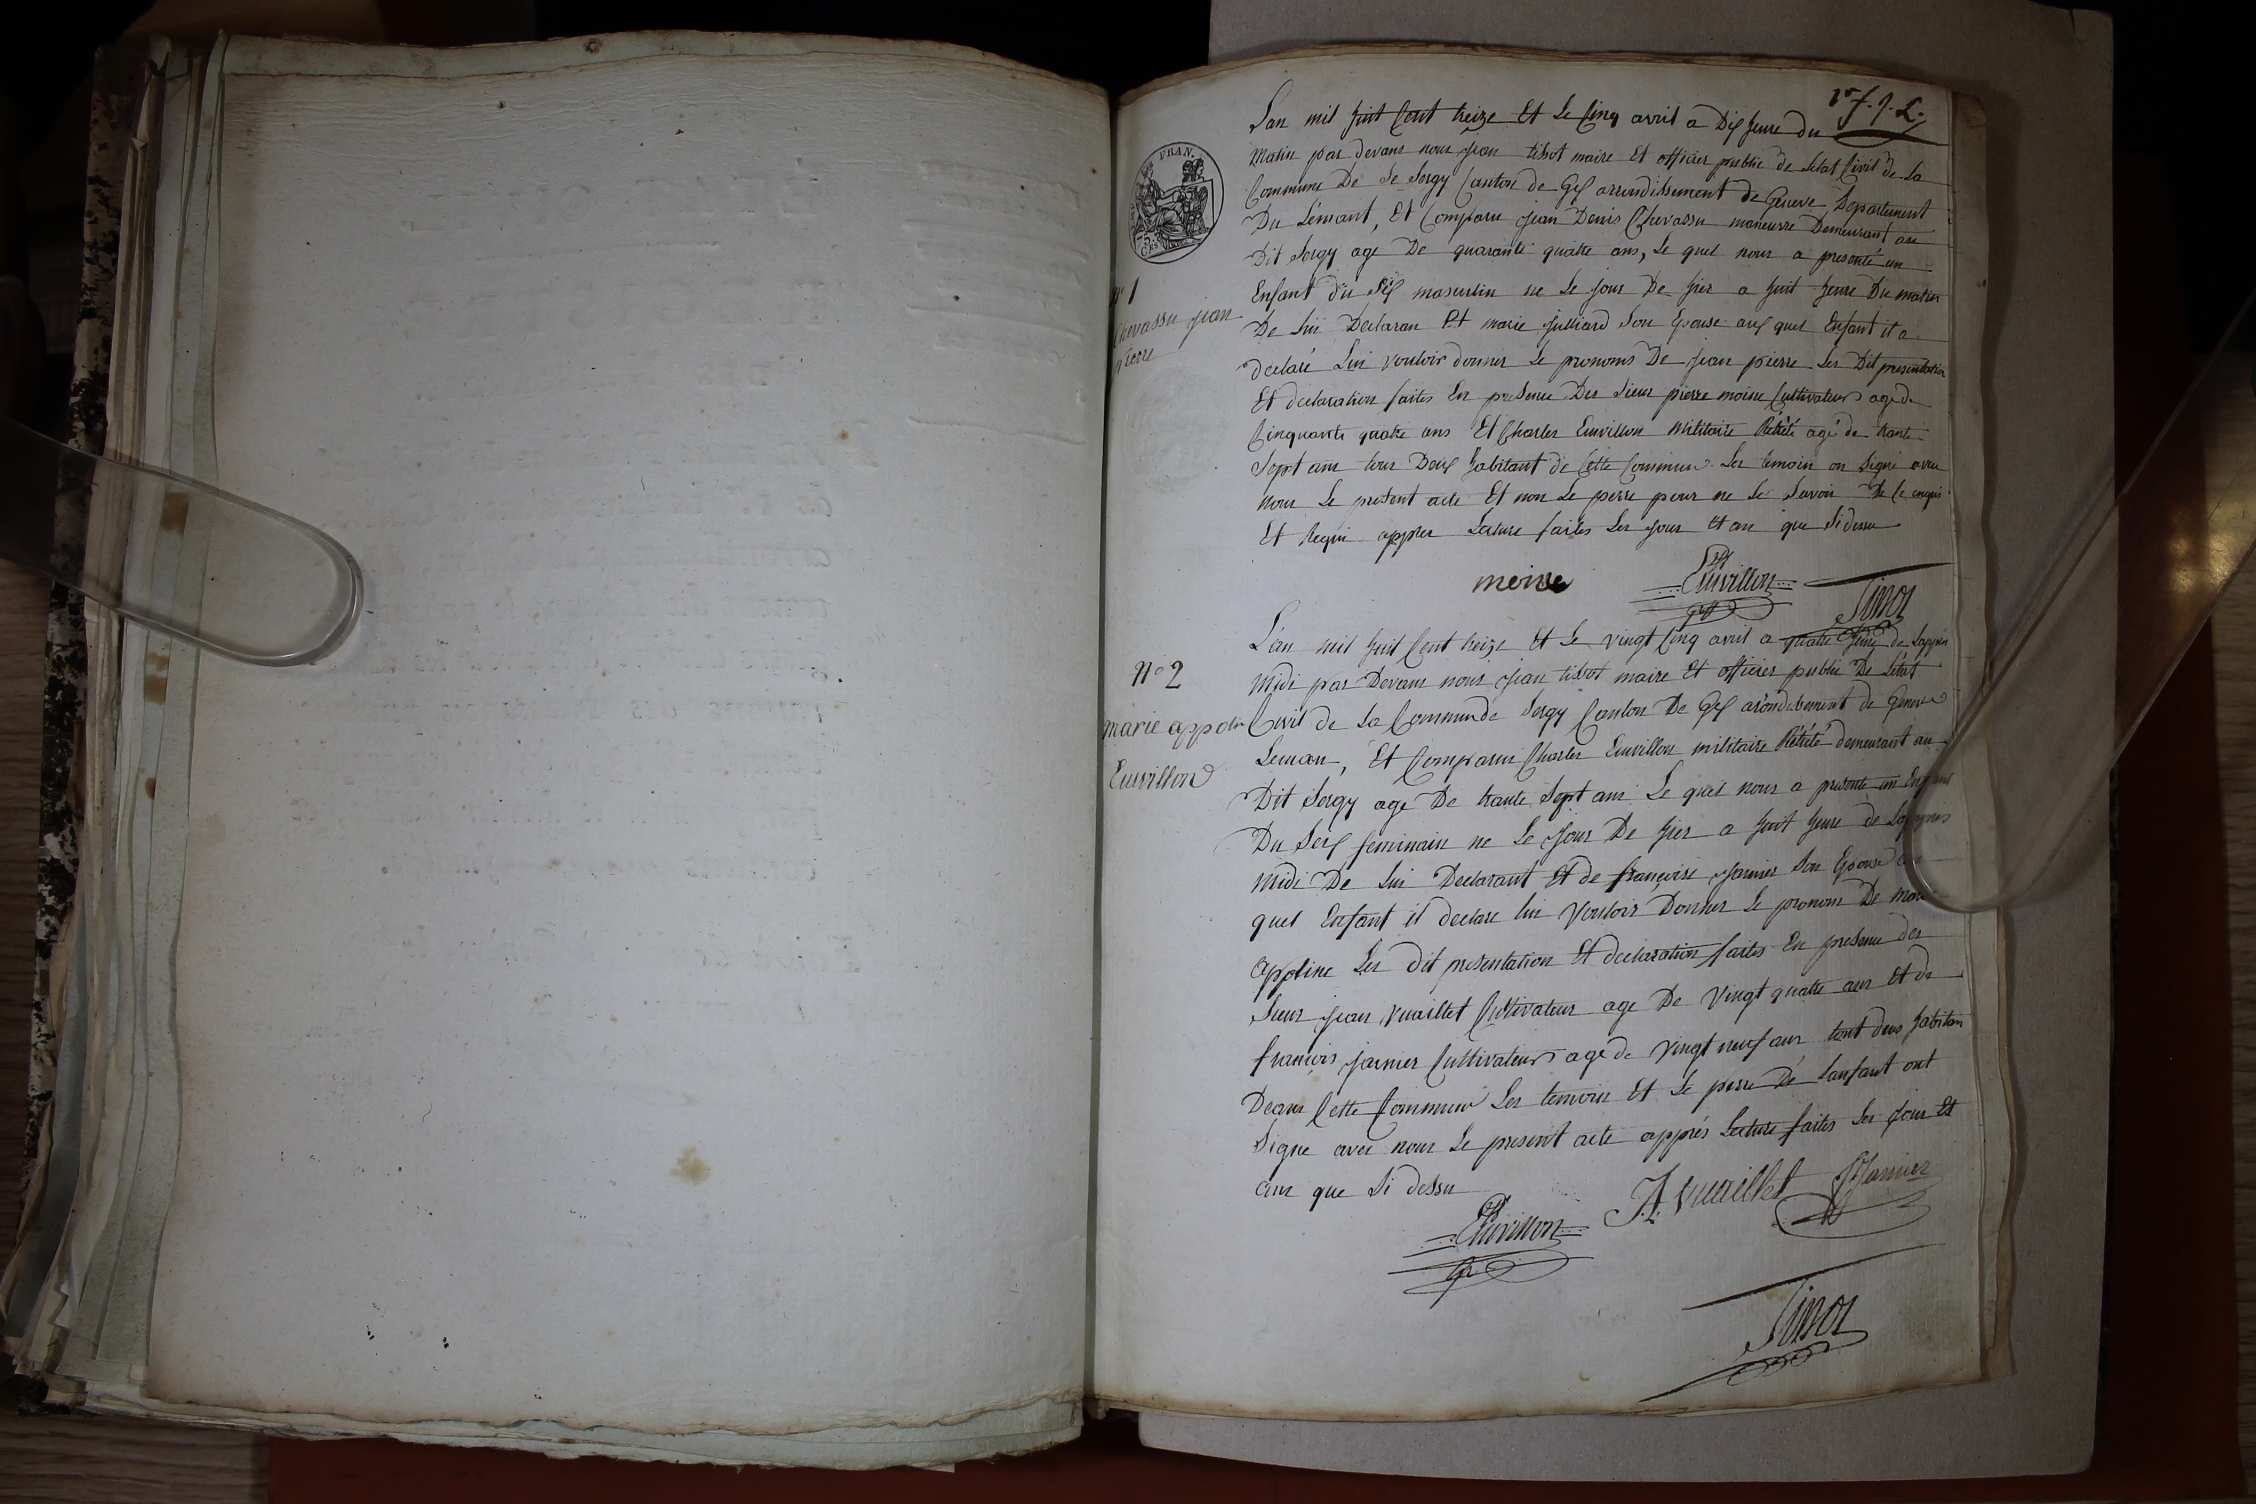 1er f. J. L.
Lan mil huit Cent treize Et Le Cinq avril a Dix heure du
Matin par devans nous jean tissot maire Et officier public de Letat Civil de La
Commune De Sergy Canton de Gex arrondissement de Geneve Departement
Du Lémant, Et Comparu jean Denis Chevassu maneuvre Demeurant au
Dit Sergy age De quarante quatre ans, Le quel nous a presenté un
Enfant du Sex masculin ne Le jour De hier a huit heure Du matin
De lui Declaran Et marie julliard Son Epouse auf quel Enfant il a
declaré Lui vouloir donner Le pronoms De jean pierre Les Dit presentation
Et declaration faites En presence Des Sieur pierre moine Cultivateur age de
Cinquante quatre ans Et Charles Euvillon Militaire Rétrété agé de trante
Sept ans tous Deux habitant de Cette Commune Les temoin on Signé avec
nous Le present acte Et non Le perre pour ne Le Savoir De Ce enquis
Et Requi apprer Lecture faites Les jour et an que Si dessu
N° 1
Chevassu jean
pierre
moine
Euvillon
Tissot
L'an mil huit Cent treize Et Le vingt Cinq avril a quatre heure de Lapprès
Midi par Devans nous jean tissot maire Et officier public De Létat
Civil de La Commun de Sergy Canton De Gex arondissement de Geneve
Leman, Et Comparu Charles Euvillon militaire Rétrété demeurant au
Dit Sergy age De trante Sept ans Le quel nous a presenté un Enfant
Du Sex feminain ne Le jour De hier a huit heure de Lapprès
Midi De Lui Declarant Et de françoise jarnier Son Epouse
quel Enfant il declare lui Vouloir Donner Le pronom De marie
appoline Les dit presentation Et declaration faites En presence des
Sieur jean Vuaillet Cultivateur age De Vingt quatre ans Et de
françois jarnier Cultivateur agé de Vingt neuf ans tout deus habitan
Deans Cette Commune Les temoin Et Le perre De Lanfant ont
Signe avec nous Le present acte apprés Lecture faites Les jour Et
ans que Si dessu
N° 2
marie appoline
Euvillon
Euvillon
J.A. Vuaillet
F Jarnier
Tissot